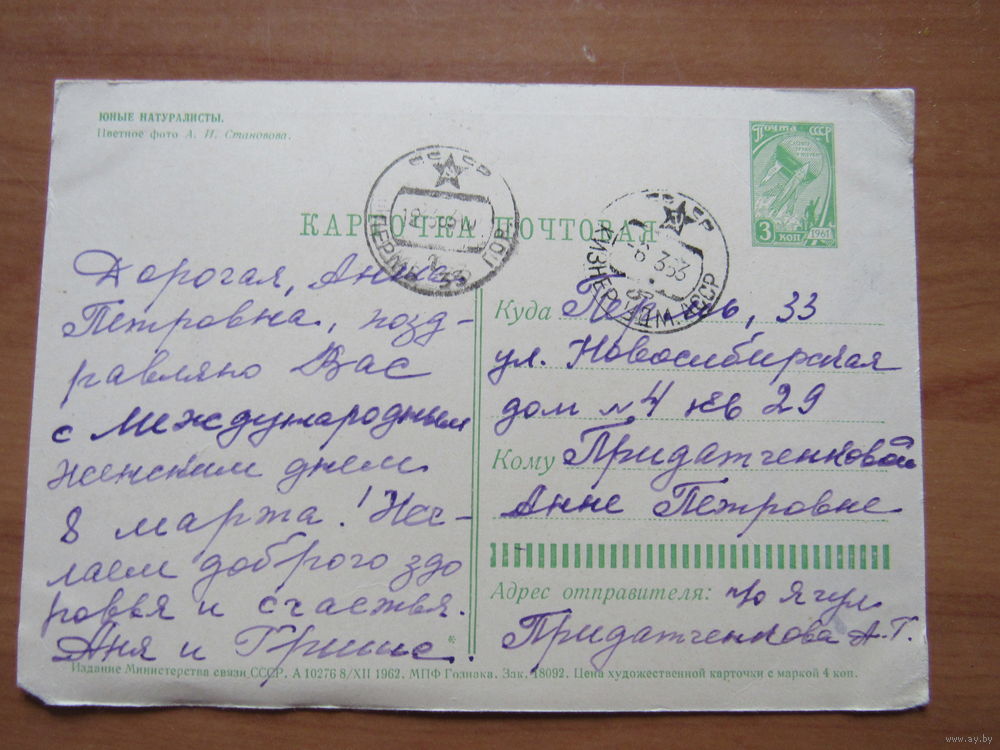 ЮНЫЕ НАТУРАЛИСТЫ.
Цветное фото А. И. Становова.
Почта СССР
3 коп
1961
СССР
ПЕРМЬ
СССР
КИЗНЕР УДМ. АССР
КАРТОЧКА ПОЧТОВАЯ
Дорогая, Анна
Петровна, позд-
равляю Вас
с Международным
женским днем
8 марта! Же-
лаем доброго здо
ровья и счастья.
Аня и Гриша.
Куда Пермь, 33
ул. Новосибирская
дом № 4 кв 29
Кому Придатченковой
Анне Петровне
Адрес отправителя: п/о Ягул
Придатченкова А.Г.
Издание Министерства связи СССР. А 10276 8/XII 1962. МПФ Гознака. Зак. 18092. Цена художественной карточки с маркой 4 коп.
www.ay.by